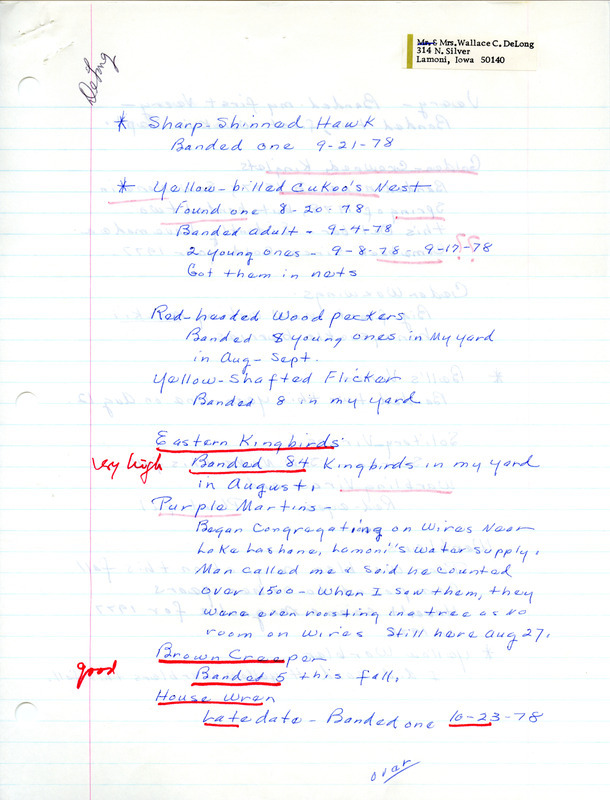 DeLong
Mr. & Mrs. Wallace C. DeLong
314 N. Silver
Lamoni, Iowa 50140
* Sharp-Shinned Hawk
Banded one 9-21-78
* Yellow-billed Cukoo's Nest
Found one 8-20-78
Banded adult - 9-4-78
2 young ones - 9-8-78 9-17-78
??
Got them in nets
Red-headed Woodpeckers
Banded 8 young ones in my yard
in Aug-Sept.
Yellow-Shafted Flicker
Banded 8 in my yard
Eastern Kingbirds
very high Banded 84 Kingbirds in my yard
in August.
Purple Martins-
Began Congregating on Wires Near
Lake Lashane, Lamoni's water supply.
Man called me & said he counted
over 1500 - When I saw them, they
were even roosting in a tree as no
room on wires Still here Aug 27.
Brown Creeper
good Banded 5 this fall.
House Wren
Late date - Banded one 10-23-78
over